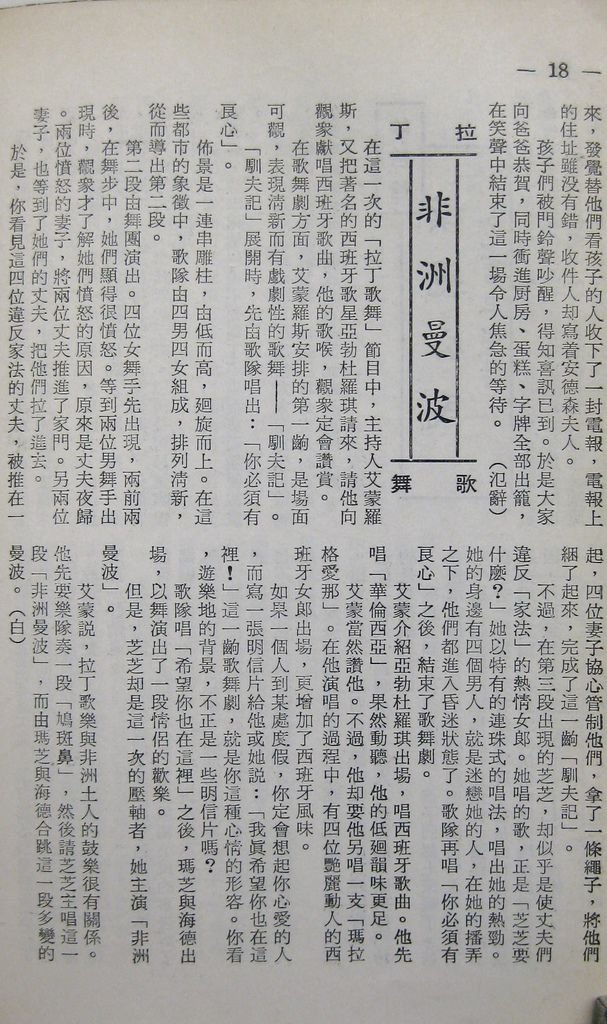 — 18 —
來，發覺替他們看孩子的人收下了一封電報，電報上
的住址雖没有錯，收件人却寫着安德森夫人。
孩子們被門鈴聲吵醒，得知喜訊已到。於是大家
向爸爸恭賀，同時衝進厨房、蛋糕、字牌全部出籠，
在笑聲中結束了這一場令人焦急的等待。（氾辭）
拉丁
非洲曼波
歌舞
在這一次的「拉丁歌舞」節目中，主持人艾蒙羅
斯，又把著名的西班牙歌星亞勃杜羅琪請來，請他向
觀衆獻唱西班牙歌曲，他的歌喉，觀衆定會讚賞。
在歌舞劇方面，艾蒙羅斯安排的第一齣，是場面
可觀，表現清新而有戲劇性的歌舞——「馴夫記」。
「馴夫記」展開時，先由歌隊唱出：「你必須有
良心」。
佈景是一連串雕柱，由低而高，廻旋而上。在這
些都市的象徵中，歌隊由四男四女組成，排列清新，
從而導出第二段。
第二段由舞團演出。四位女舞手先出現，兩前兩
後，在舞步中，她們顯得很憤怒。等到兩位男舞手出
現時，觀衆才了解她們憤怒的原因，原來是丈夫夜歸
。兩位憤怒的妻子，將兩位丈夫推進了家門。另兩位
妻子，也等到了她們的丈夫，把他們拉了進去。
於是，你看見這四位違反家法的丈夫，被推在一
起，四位妻子協心管制他們，拿了一條繩子，將他們
綑了起來，完成了這一齣「馴夫記」。
不過，在第三段出現的芝芝，却似乎是使丈夫們
違反「家法」的熱情女郎。她唱的歌，正是「芝芝要
什麽？」她以特有的連珠式的唱法，唱出她的熱勁。
她的身邊有四個男人，就是迷戀她的人，在她的播弄
之下，他們都進入昏迷狀態了。歌隊再唱「你必須有
良心」之後，結束了歌舞劇。
艾蒙介紹亞勃杜羅琪出場，唱西班牙歌曲。他先
唱「華倫西亞」，果然動聽，他的低廻韻味更足。
艾蒙當然讚他。不過，他却要他另唱一支「瑪拉
格愛那」。在他演唱的過程中，有四位艷麗動人的西
班牙女郎出場，更增加了西班牙風味。
如果一個人到某處度假，你定會想起你心愛的人
，而寫一張明信片給他或她說：「我眞希望你也在這
裡！」這一齣歌舞劇，就是你這種心情的形容。你看
，遊樂地的背景，不正是一些明信片嗎？
歌隊唱「希望你也在這裡」之後，瑪芝與海德出
場，以舞演出了一段情侶的歡樂。
但是，芝芝却是這一次的壓軸者，她主演「非洲
曼波」。
艾蒙說，拉丁歌樂與非洲土人的鼓樂很有關係。
他先要樂隊奏一段「鳩斑鼻」，然後請芝芝主唱這一
段「非洲曼波」，而由瑪芝與海德合跳這一段多變的
曼波。（白）